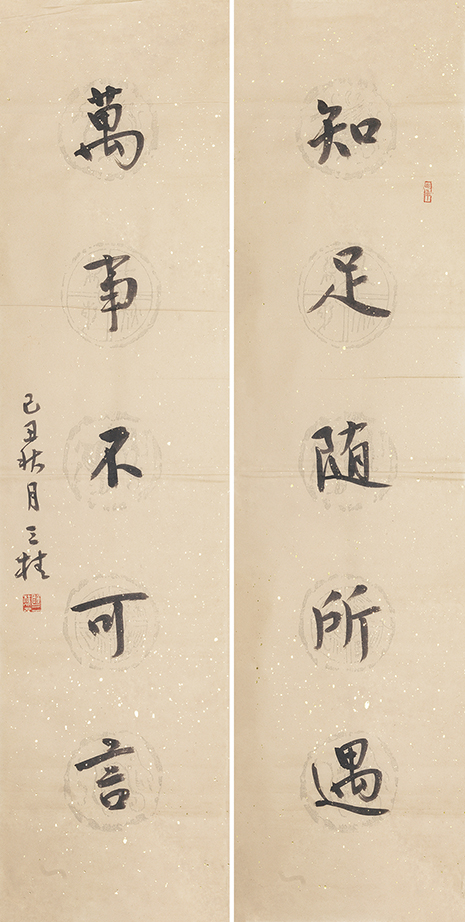 知足随所遇
萬事不可言
己丑秋月 三桂